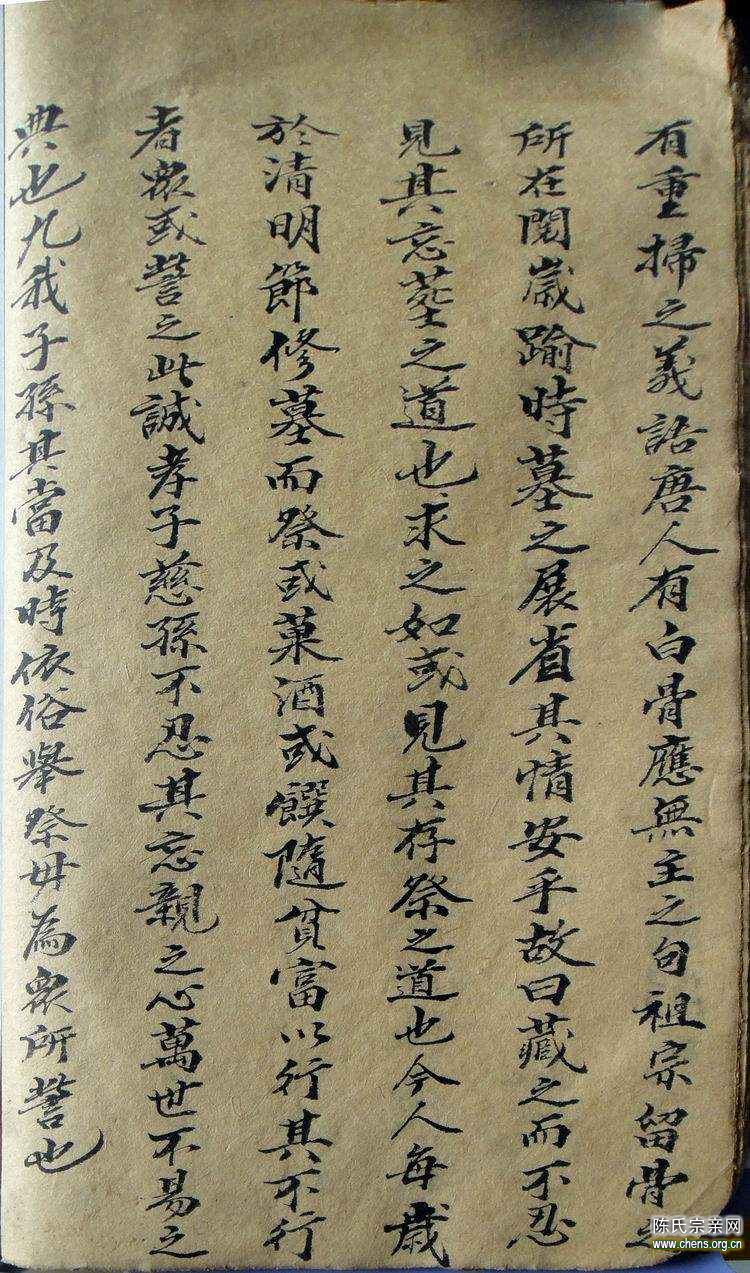 有重掃之義語唐人有白骨應無主之句祖宗留骨之
所在閱歲踰時墓之展省其情安乎故曰藏之而不忍
見其忘塟之道也求之如或見其存祭之道也今人每歲
於清明節修墓而祭或菓酒或饌隨貧富以行其不行
者衆或訾之此誠孝子慈孫不忍其忘親之心萬世不易之
典也凡我子孫其當及時依俗舉祭毋為衆所訾也
陈氏宗亲网
www.chens.org.cn